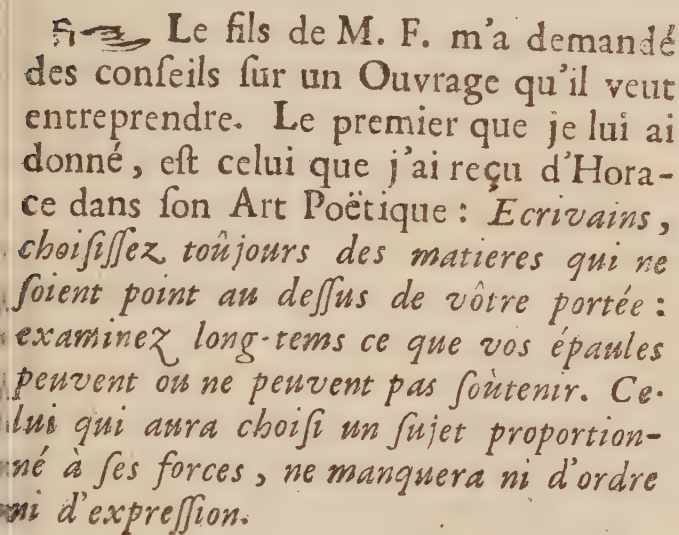 Le fils de M. F. m'a demandé
des conſeils ſur un Ouvrage qu'il veut
entreprendre. Le premier que je lui ai
donné, eſt celui que j'ai reçu d'Hora-
ce dans ſon Art Poëtique : Ecrivains,
choiſiſſez toûjours des matieres qui ne
ſoient point au deſſus de vôtre portée :
examinez long-tems ce que vos épaules
peuvent ou ne peuvent pas ſoûtenir. Ce-
lui qui aura choiſi un ſujet proportion-
né à ſes forces, ne manquera ni d'ordre
ni d'expreſſion.